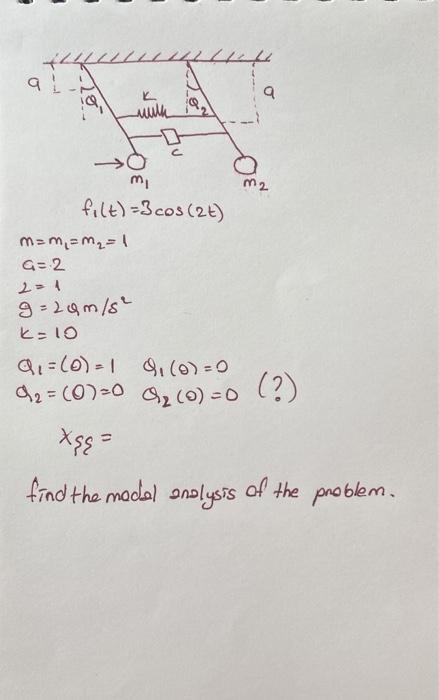 a
Q₁
K
Q₂
a
c
m₁
m₂
f₁(t) = 3cos(2t)
m = m₁ = m₂ = 1
a = 2
2 = 1
k = 10
Q₁ = (0) = 1 Q₁(0) = 0
Q₂ = (0) = 0 Q₂(0) = 0 (?)
find the modal analysis of the problem.